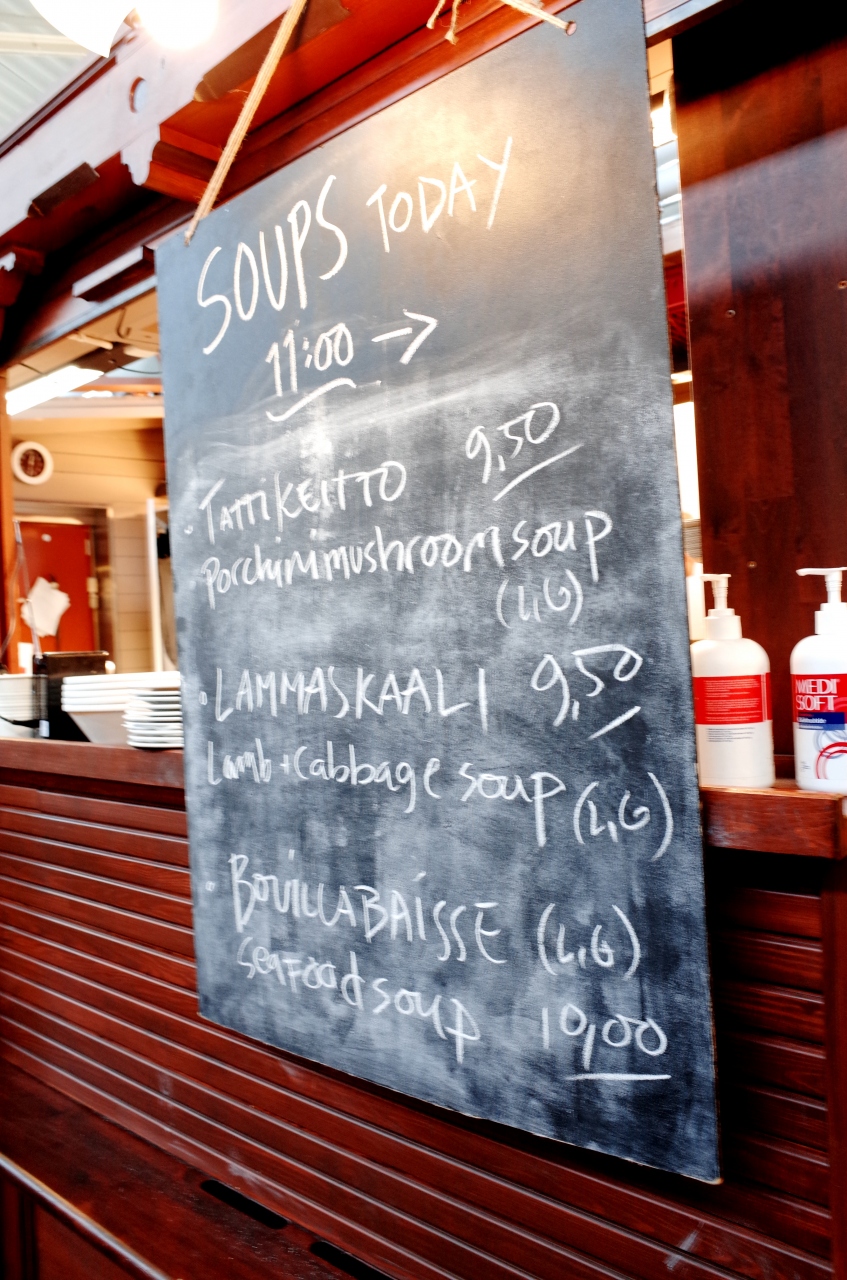 SOUPS TODAY
11:00 →
• TATTIKEITTO 9,50
Porchini mushroom soup
(L,G)
• LAMMASKAALI 9,50
Lamb + cabbage soup (L,G)
• BOUILLABAISSE (L,G)
seafood soup 10,00
MEDI
SOFT